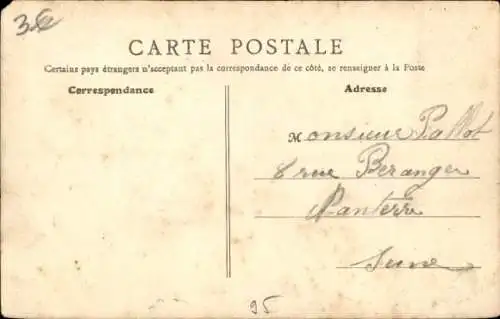 3€
CARTE POSTALE
Certains pays étrangers n'acceptant pas la correspondance de ce côté, se renseigner à la Poste
Correspondance
Adresse
Monsieur Pallot
8 rue Beranger
Nanterre
Seine
95